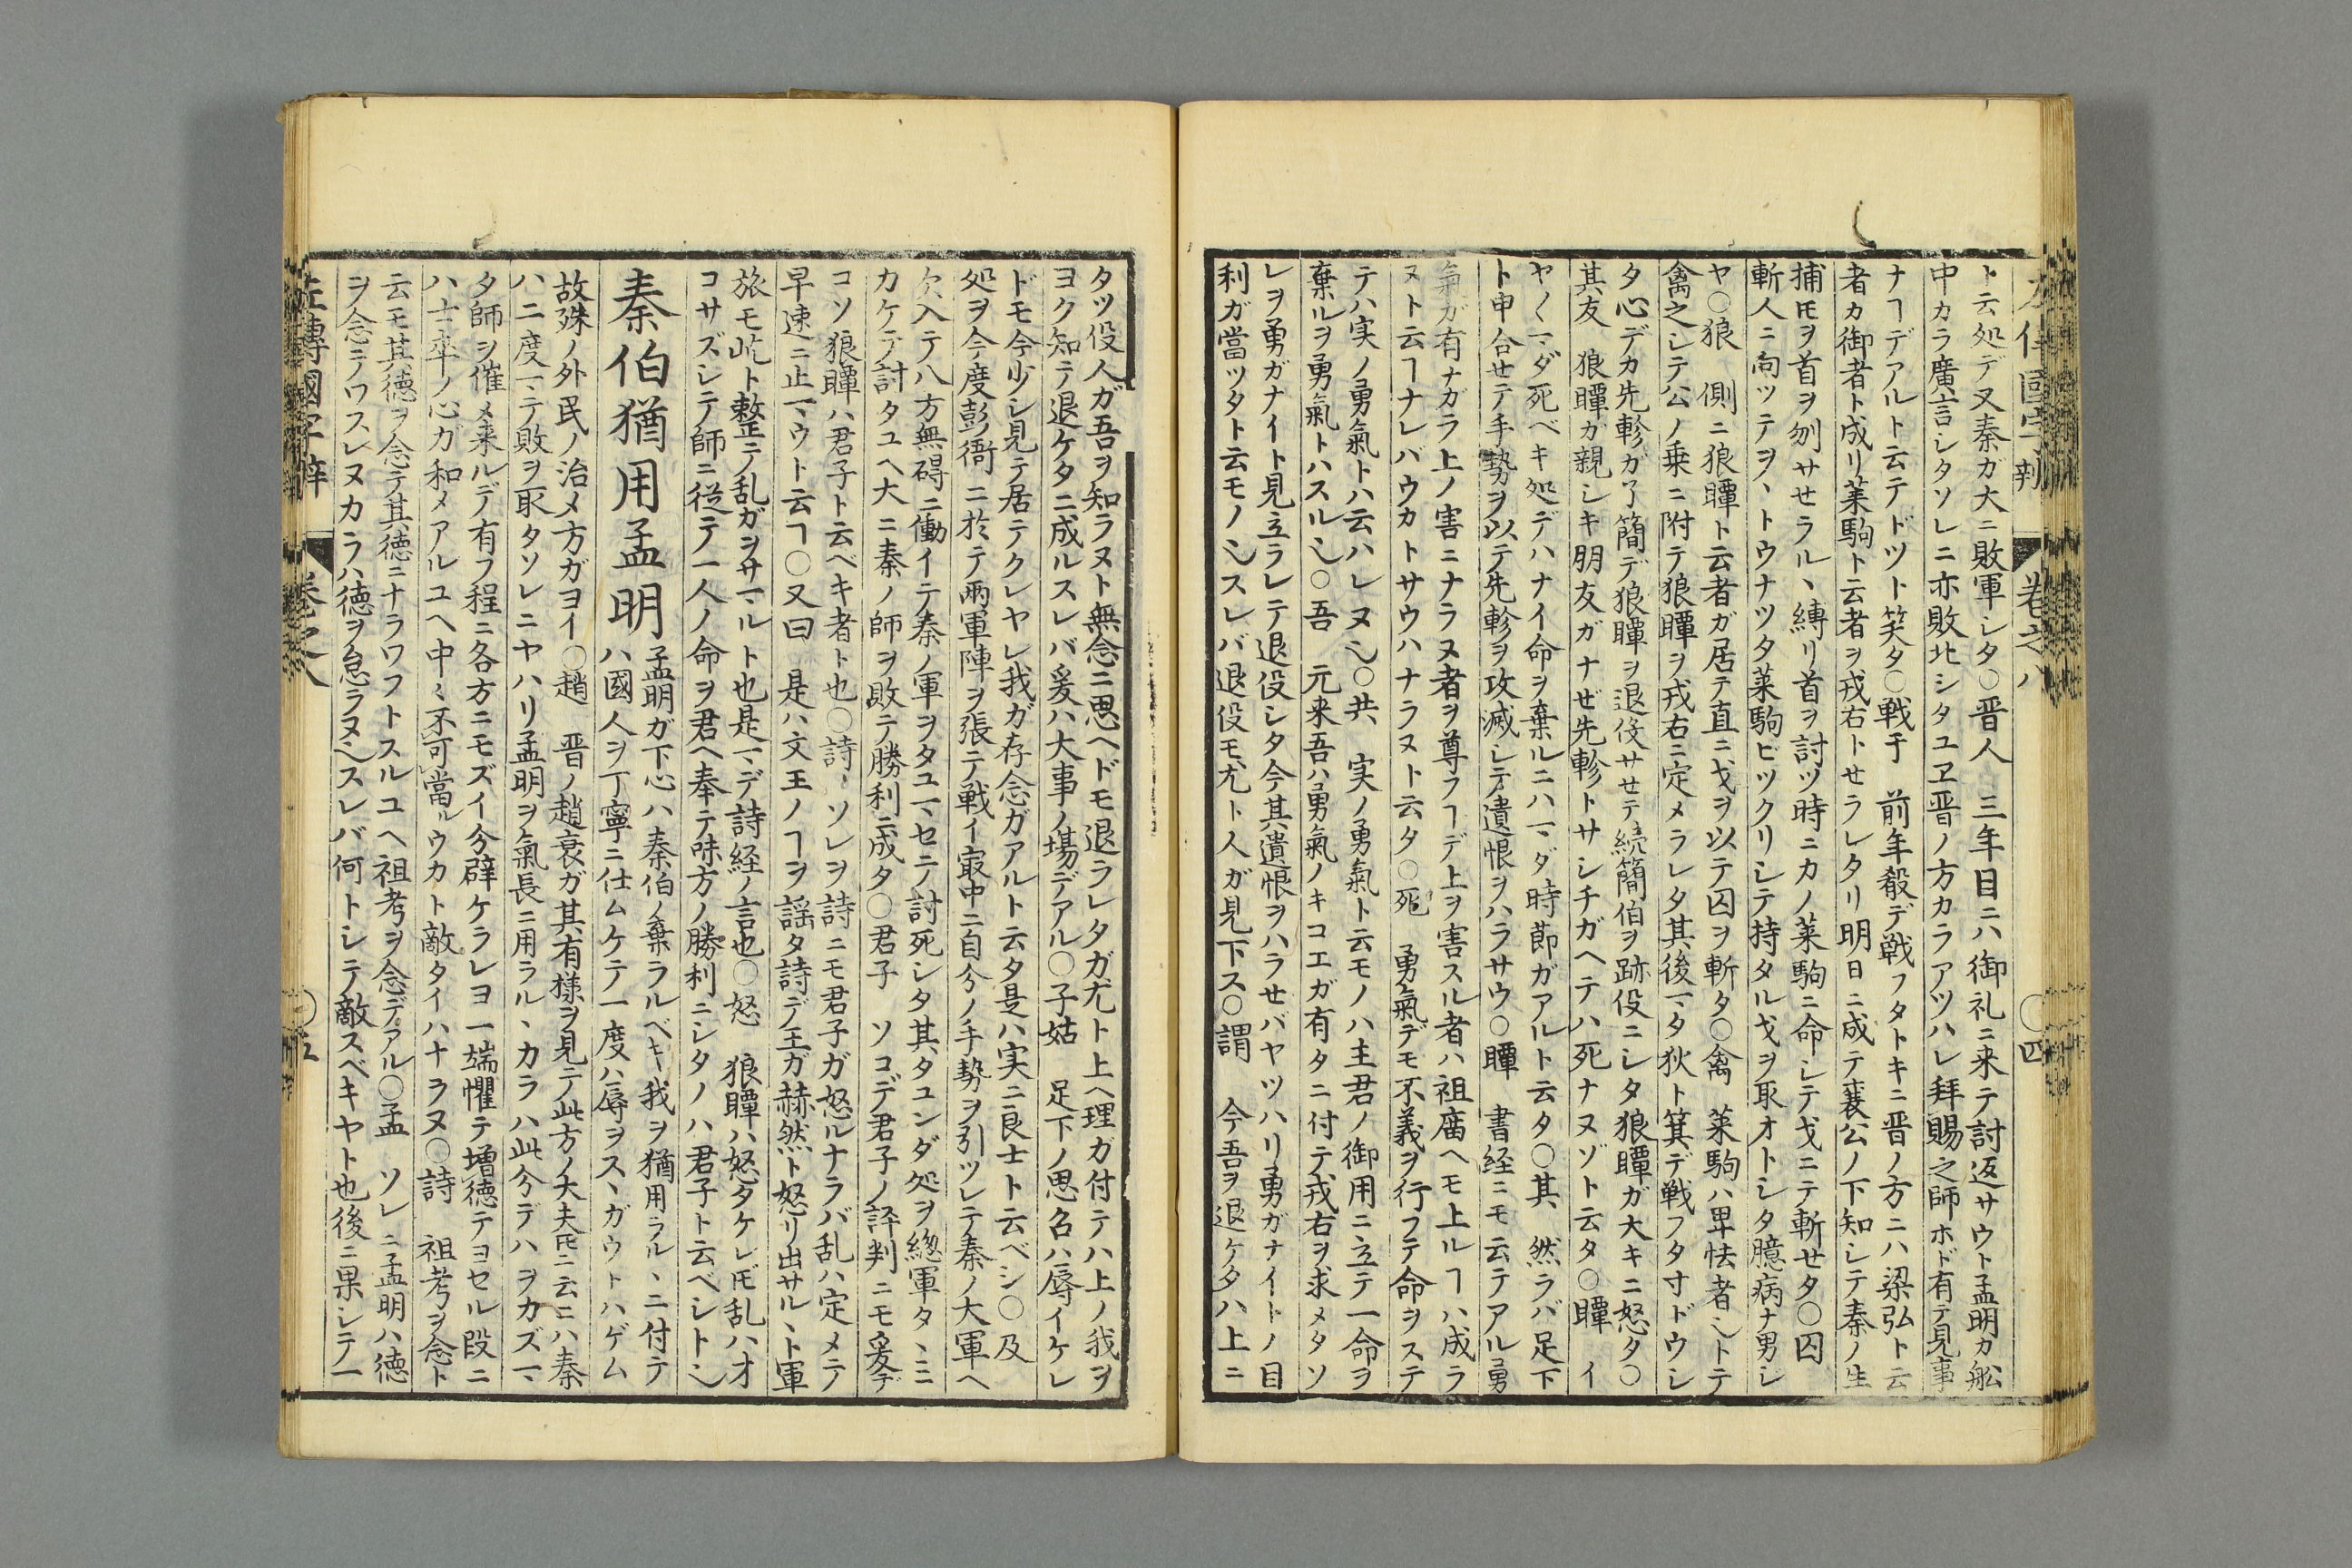 ト云処デ又秦ガ大ニ敗軍シタ○晋人　三年目ニハ御礼ニ来テ討返サウト孟明カ舩
中カラ廣言シタソレニ亦敗北シタユヱ晋ノ方カラアツハレ拜賜之師ホド有テ見事
ナヿデアルト云テドツト笑タ○戦于　前年殽デ戦フタトキニ晋ノ方ニハ梁弘ト云
者カ御者ト成リ莱駒ト云者ヲ戎右トセラレタリ明日ニ成テ襄公ノ下知シテ秦ノ生
捕𪜈ヲ首ヲ刎サセラル、縛リ首ヲ討ツ時ニカノ莱駒ニ命シテ戈ニテ斬セタ○囚
斬人ニ向ツテヲ、トウナツタ莱駒ビツクリシテ持タル戈ヲ取オトシタ臆病ナ男シ
ヤ○狼　側ニ狼瞫ト云者ガ居テ直ニ戈ヲ以テ囚ヲ斬タ○禽　莱駒ハ卑怯者乀トテ
禽之シテ公ノ乗ニ附テ狼瞫ヲ戎右ニ定メラレタ其後マタ狄ト箕デ戦フタ寸ドウシ
タ心デカ先軫ガ了簡デ狼瞫ヲ退役サセテ続簡伯ヲ跡役ニシタ狼瞫ガ大キニ怒タ○
其友　狼瞫ガ親シキ朋友ガナゼ先軫トサシチガヘテハ死ナヌゾト云タ○瞫　イ
ヤ〱マダ死ベキ処デハナイ命ヲ棄ルニハマダ時節ガアルト云タ○其　然ラバ足下
ト申合セテ手勢ヲ以テ先軫ヲ攻滅シテ遺恨ヲハラサウ○瞫　書経ニモ云テアル勇
氣ガ有ナガラ上ノ害ニナラヌ者ヲ尊フヿデ上ヲ害スル者ハ祖庿ヘモ上ルヿハ成ラ
ヌト云ヿナレバウカトサウハナラヌト云タ○死　勇氣デモ不義ヲ行フテ命ヲステ
テハ実ノ勇氣トハ云ハレヌ乀○共　実ノ勇氣ト云モノハ主君ノ御用ニ立テ一命ヲ
棄ルヲ勇氣トハスル乀○吾　元来吾ハ勇氣ノキコエガ有タニ付テ戎右ヲ求メタソ
レヲ勇ガナイト見立ラレテ退役シタ今其遺恨ヲハラセバヤツハリ勇ガナイトノ目
利ガ當ツタト云モノ乀スレバ退役モ尤ト人ガ見下ス○謂　今吾ヲ退ケタハ上ニ
卷之八　○四
タツ役人ガ吾ヲ知ラヌト無念ニ思ヘドモ退ラレタガ尤ト上ヘ理ガ付テハ上ノ我ヲ
ヨク知テ退ケタニ成ルスレバ爰ハ大事ノ場デアル○子姑　足下ノ思召ハ辱イケレ
ドモ今少シ見テ居テクレヤレ我ガ存念ガアルト云タ是ハ実ニ良士ト云ベシ○及
処ヲ今度彭衙ニ於テ両軍陣ヲ張テ戦イ㝡中ニ自分ノ手勢ヲ引ツレテ秦ノ大軍ヘ
欠入テ八方無碍ニ働イテ秦ノ軍ヲタユマセニテ討死シタ其タユンダ処ヲ總軍タ、ニ
カケテ討タユヘ大ニ秦ノ師ヲ敗テ勝利ニ成タ○君子　ソコデ君子ノ評判ニモ爰デ
コソ狼瞫ハ君子ト云ベキ者ト也○詩ヽ　ソレヲ詩ニモ君子ガ怒ルナラバ乱ハ定メテ
早速ニ止マウト云ヿ○又曰　是ハ文王ノヿヲ謡タ詩デ王ガ赫然ト怒リ出サル、ト軍
旅モ屹ト整テ乱ガヲサマルト也是マデ詩経ノ言也○怒　狼瞫ハ怒タケレ𪜈乱ハオ
コサズシテ師ニ従テ一人ノ命ヲ君ヘ奉テ味方ノ勝利ニシタノハ君子ト云ベシト乀
秦伯猶用孟明　孟明ガ下心ハ秦伯ノ棄ラルベキ我ヲ猶用ラル、ニ付テ
ハ國人ヲ丁寧ニ仕ムケテ一度ハ辱ヲス、ガウトハゲム
故殊ノ外民ノ治メ方ガヨイ○趙　晋ノ趙衰ガ其有様ヲ見テ此方ノ大夫𪜈ニ云ニハ秦
ハ二度マテ敗ヲ取タソレニヤハリ孟明ヲ氣長ニ用ラル、カラハ此分デハヲカズマ
タ師ヲ催メ来ルデ有フ程ニ各方ニモズイ分辟ケラレヨ一端懼テ増徳テヨセル段ニ
ハ士卒ノ心ガ和メアルユヘ中〻不可當ルウカト敵タイハナラヌ○詩　祖考ヲ念ト
云モ其徳ヲ念テ其徳ニナラワフトスルユヘ祖考ヲ念デアル○孟　ソレニ孟明ハ徳
ヲ念ニテワスレヌカラハ徳ヲ怠ラヌ乀スレバ何トシテ敵スベキヤト也後ニ果シテ一
左傳國字辯　卷之八　○五